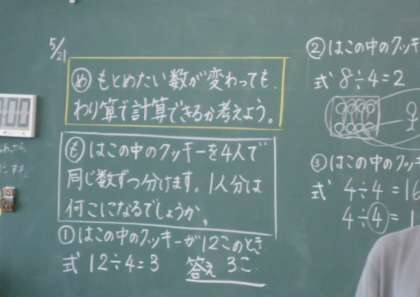 5/21
め もとめたい数が変わっても、
わり算で計算できるか考えよう。
も はこの中のクッキーを4人で
同じ数ずつ分けます。1人分は
何こになるでしょうか。
① はこの中のクッキーが12このとき
式 12÷4=3 答え 3こ
② はこの中のクッキ
式 8÷4=2
③ はこの中のクッキ
式 4÷4=
4÷4=